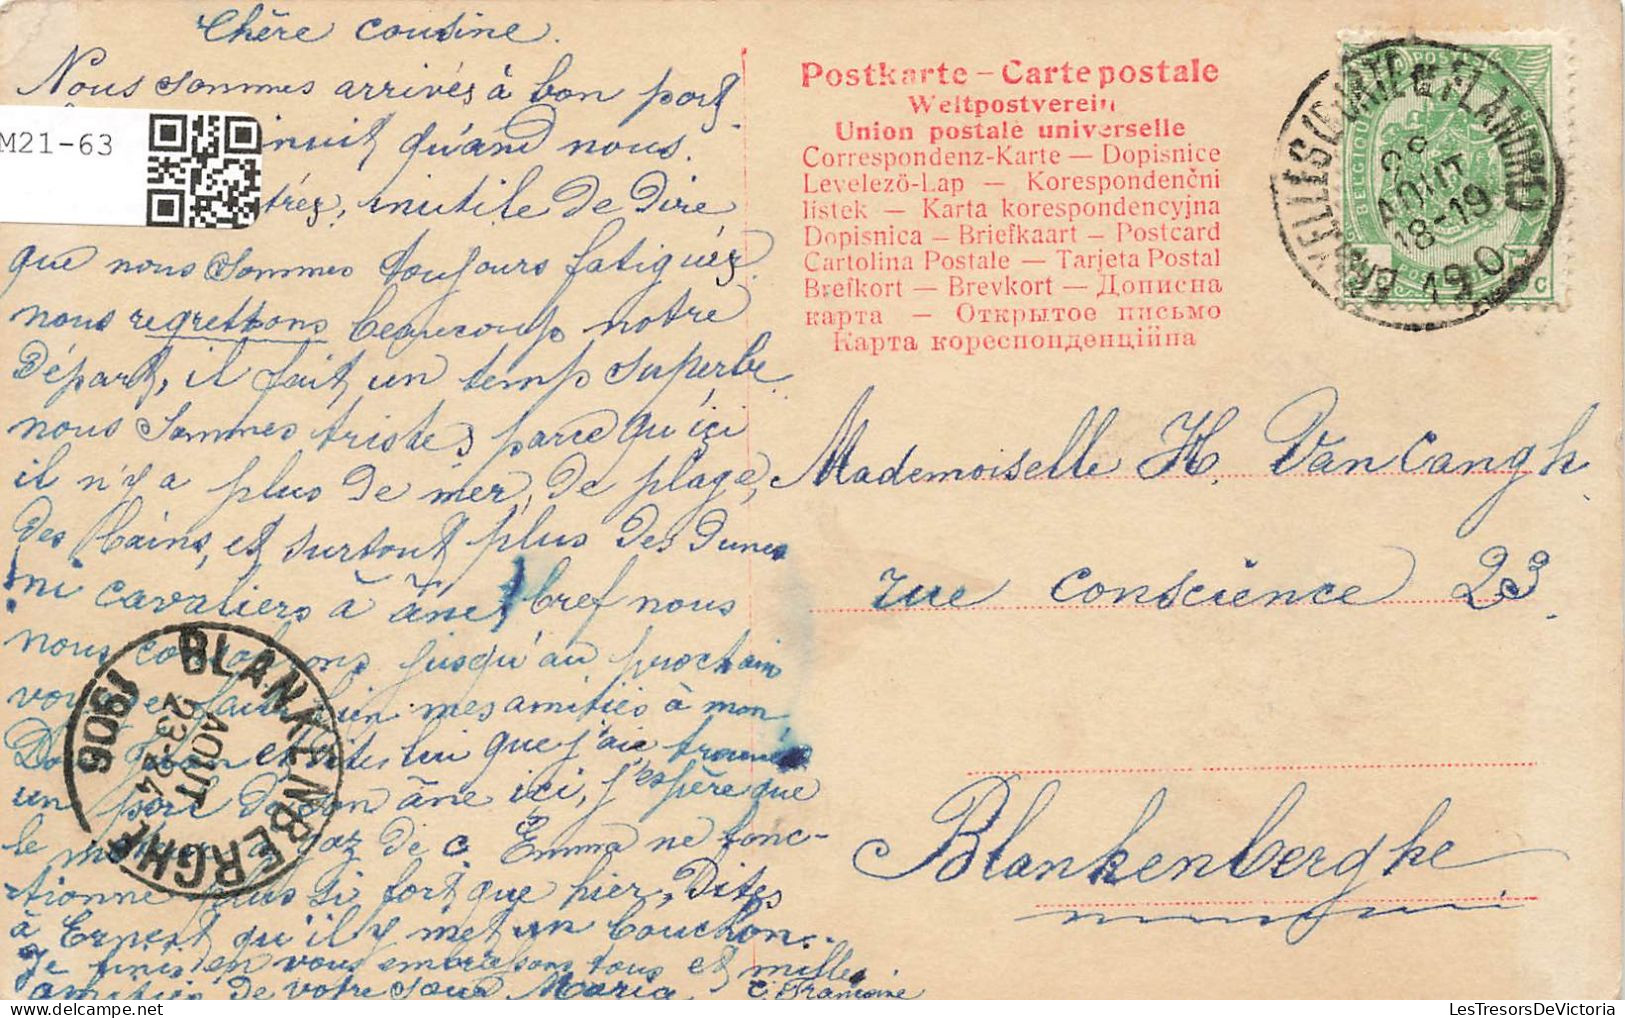 Chère cousine.
Nous sommes arrivés à bon port
inuit qu'and nous.
trés, inutile de dire
que nous sommes toujours fatigués.
nous regrettons beaucoup notre
départ, il fait un temp superbe
nous sommes tristes parce qu'içi
il n'y a plus de mer, de plage,
des bains, et surtout plus des dunes
ni cavaliers à âne, bref nous
nous consolons jusqu'au prochain
voyage, faites bien mes amitiés à mon
et dites lui que j'aie trouvé
un porc de son âne ici, j'espère que
le gaz de c Emma ne fonc-
tionne plus si fort que hier, Dites
à Ernest qu'il y met un bouchon..
Je finis en vous embrassons tous et milles
amitiés de votre sœur Maria
C. Francine
M21-63
Postkarte – Carte postale
Weltpostverein
Union postale universelle
Correspondenz-Karte — Dopisnice
Levelezö-Lap — Korespondenčni
listek — Karta korespondencyjna
Dopisnica — Briefkaart — Postcard
Cartolina Postale — Tarjeta Postal
Brefkort — Brevkort — Дописна
карта — Открытое письмо
Карта кореспонденційна
BELGIQUE
POSTE
28
AOUT
18-19
190
Mademoiselle H. Van Cangh
rue conscience 23.
Blankenberghe
BLANKENBERGHE
AOUT
23-24
1906
LesTresorsDeVictoria